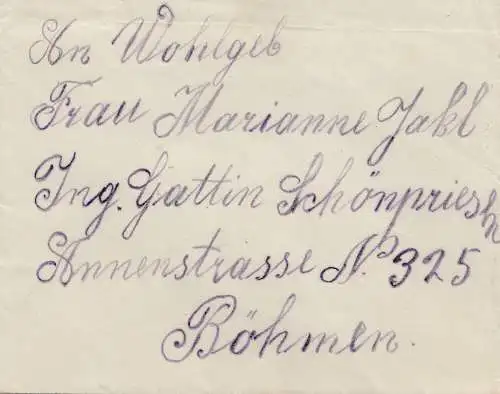 An Wohlgeb
Frau Marianne Jakl
Ing. Gattin Schönpriesen
Annenstrasse No 325
Böhmen.